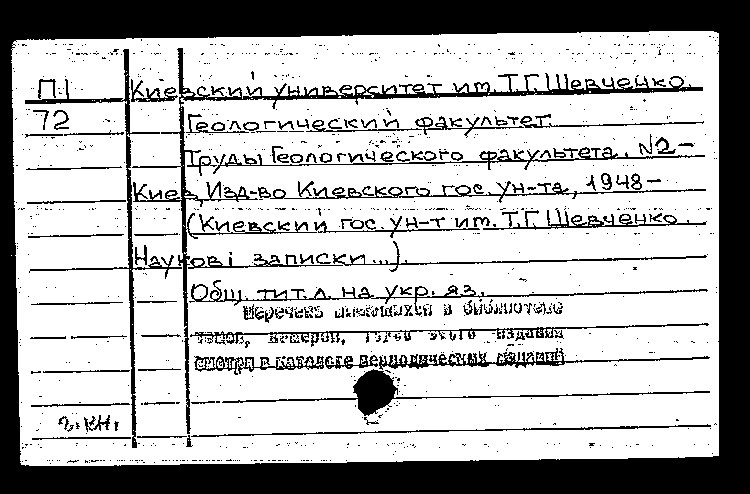 П.1 Киевский университет им. Т.Г. Шевченко.
72 Геологический факультет.
Труды Геологического факультета. N2-
Киев, Изд-во Киевского гос. ун-та, 1948-
(Киевский гос. ун-т им. Т.Г. Шевченко.
Наукові записки...).
Общ. тит. л. на укр. яз.
Перечень имеющихся в библиотеке
томов, номеров, годов этого издания
смотри в каталоге периодических изданий
2.кн.